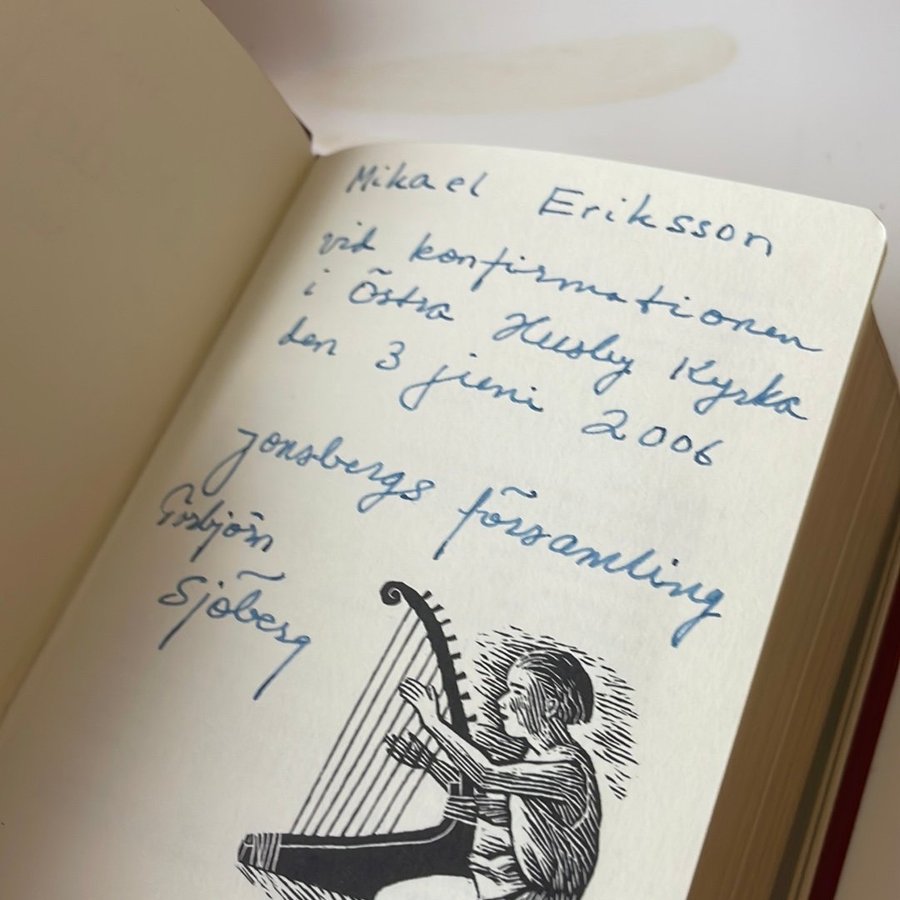 Mikael Eriksson
vid konfirmationen
i Östra Husby Kyrka
den 3 juni 2006
Jonsbergs församling
Torbjörn
Sjöberg